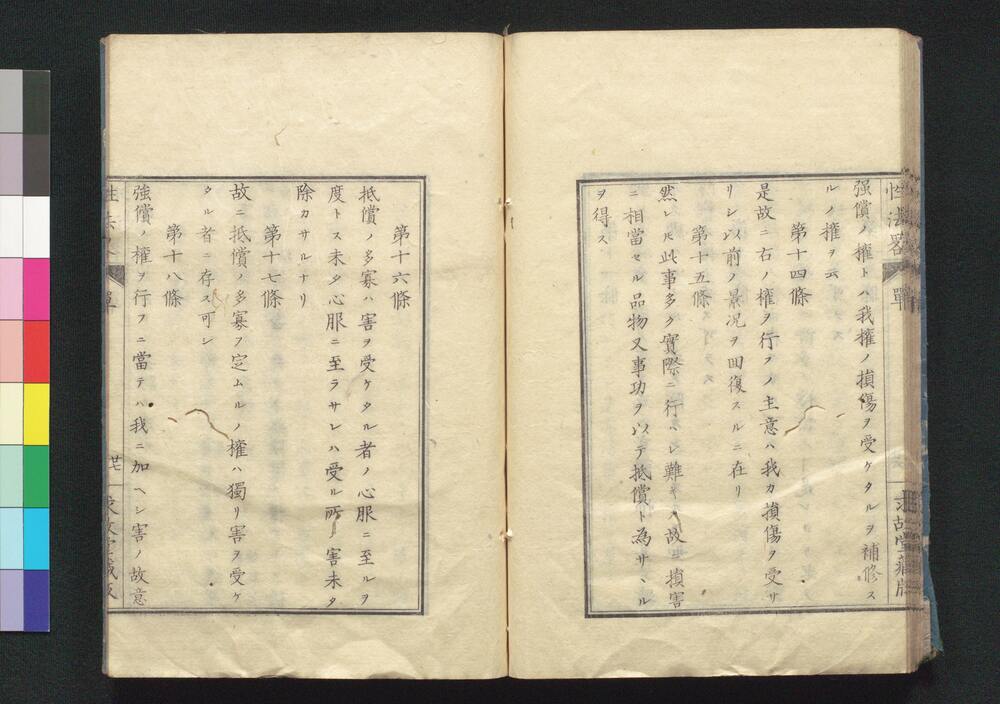 性法畧
單
求故堂藏版
强償ノ權トハ我權ノ損傷ヲ受ケタルヲ補修ス
ルノ權ヲ云
第十四條
是故ニ右ノ權ヲ行フノ主意ハ我カ損傷ヲ受サ
リシ以前ノ景況ヲ回復スルニ在リ
第十五條
然レ𪜈此事多ク實際ニ行ハレ難キヿアリ故ニ損害
ニ相當セル品物又事功ヲ以テ抵償ト為サヽル
ヲ得ス
第十六條
抵償ノ多寡ハ害ヲ受ケタル者ノ心服ニ至ルヲ
度トス未タ心服ニ至ラサレハ受ル所ノ害未タ
除カサルナリ
第十七條
故ニ抵償ノ多寡ヲ定ムルノ權ハ獨リ害ヲ受ケ
タル者ニ存ス可シ
第十八條
強償ノ權ヲ行フニ當テハ我ニ加ヘシ害ノ故意
性法畧
單
廿七
求故堂藏版